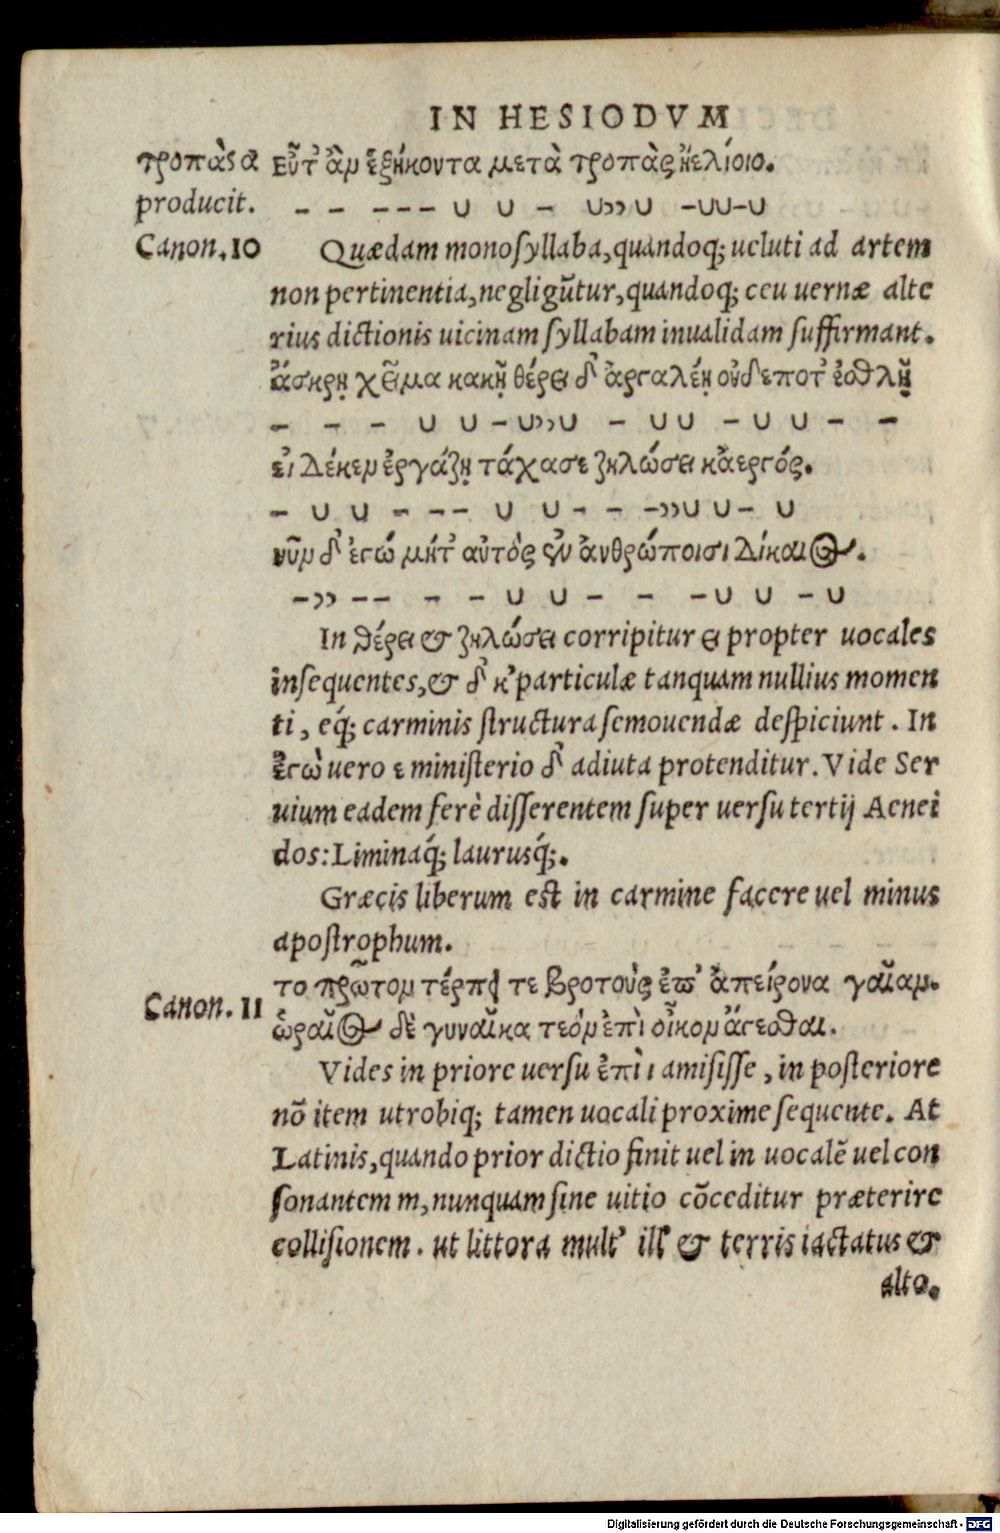 IN HESIODVM
τροπὰς α Εὖτ' ἂν ἑξήκοντα μετὰ τροπὰς ἠελίοιο.
producit. – – – – – ∪ ∪ – ∪››∪ –∪∪–∪
Canon.10 Quædam monoſyllaba,quandoq; ueluti ad artem
non pertinentia,negligũtur,quandoq; ceu uernæ alte
rius dictionis uicinam ſyllabam inualidam ſuffirmant.
ἄσκρῃ χεῖμα κακῇ θέρει δ' ἀργαλέῃ οὐδεποτ' ἐσθλῇ
– – – ∪ ∪ –∪››∪ – ∪∪ –∪∪ – –
εἰ δέκεν ἐργάζῃ τάχασε ζηλώσει κἀεργός.
– ∪ ∪ – – – ∪ ∪ – – –››∪ ∪ – ∪
νῦν δ' ἐγώ μήτ' αὐτὸς ἐν ἀνθρώποισι δίκαιος.
–›› – – – – ∪ ∪ – – –∪ ∪ –∪
In θέρει & ζηλώσει corripitur ει propter uocales
inſequentes,& δ' κ' particulæ tanquam nullius momen
ti, eq́; carminis ſtructura ſemouendæ deſpiciunt. In
ἐγὼ uero ε miniſterio δ' adiuta protenditur. Vide Ser
uium eadem ferè diſſerentem ſuper uerſu tertij Aenei
dos: Liminaq́; laurusq́;.
Græcis liberum est in carmine facere uel minus
apoſtrophum.
το πρῶτον τέρπει τε βροτοὺς ἐπ' ἀπείρονα γαῖαν.
Canon. 11 ὡραῖος δὲ γυναῖκα τεὸν ἐπὶ οἶκον ἄγεσθαι.
Vides in priore uerſu ἐπὶ ι amiſiſſe, in poſteriore
nõ item utrobiq; tamen uocali proxime ſequente. At
Latinis,quando prior dictio finit uel in uocalẽ uel con
ſonantem m,nunquam ſine uitio cõceditur præterire
colliſionem. ut littora mult' ill' & terris iactatus &
alto.
Digitalisierung gefördert durch die Deutsche Forschungsgemeinschaft - DFG